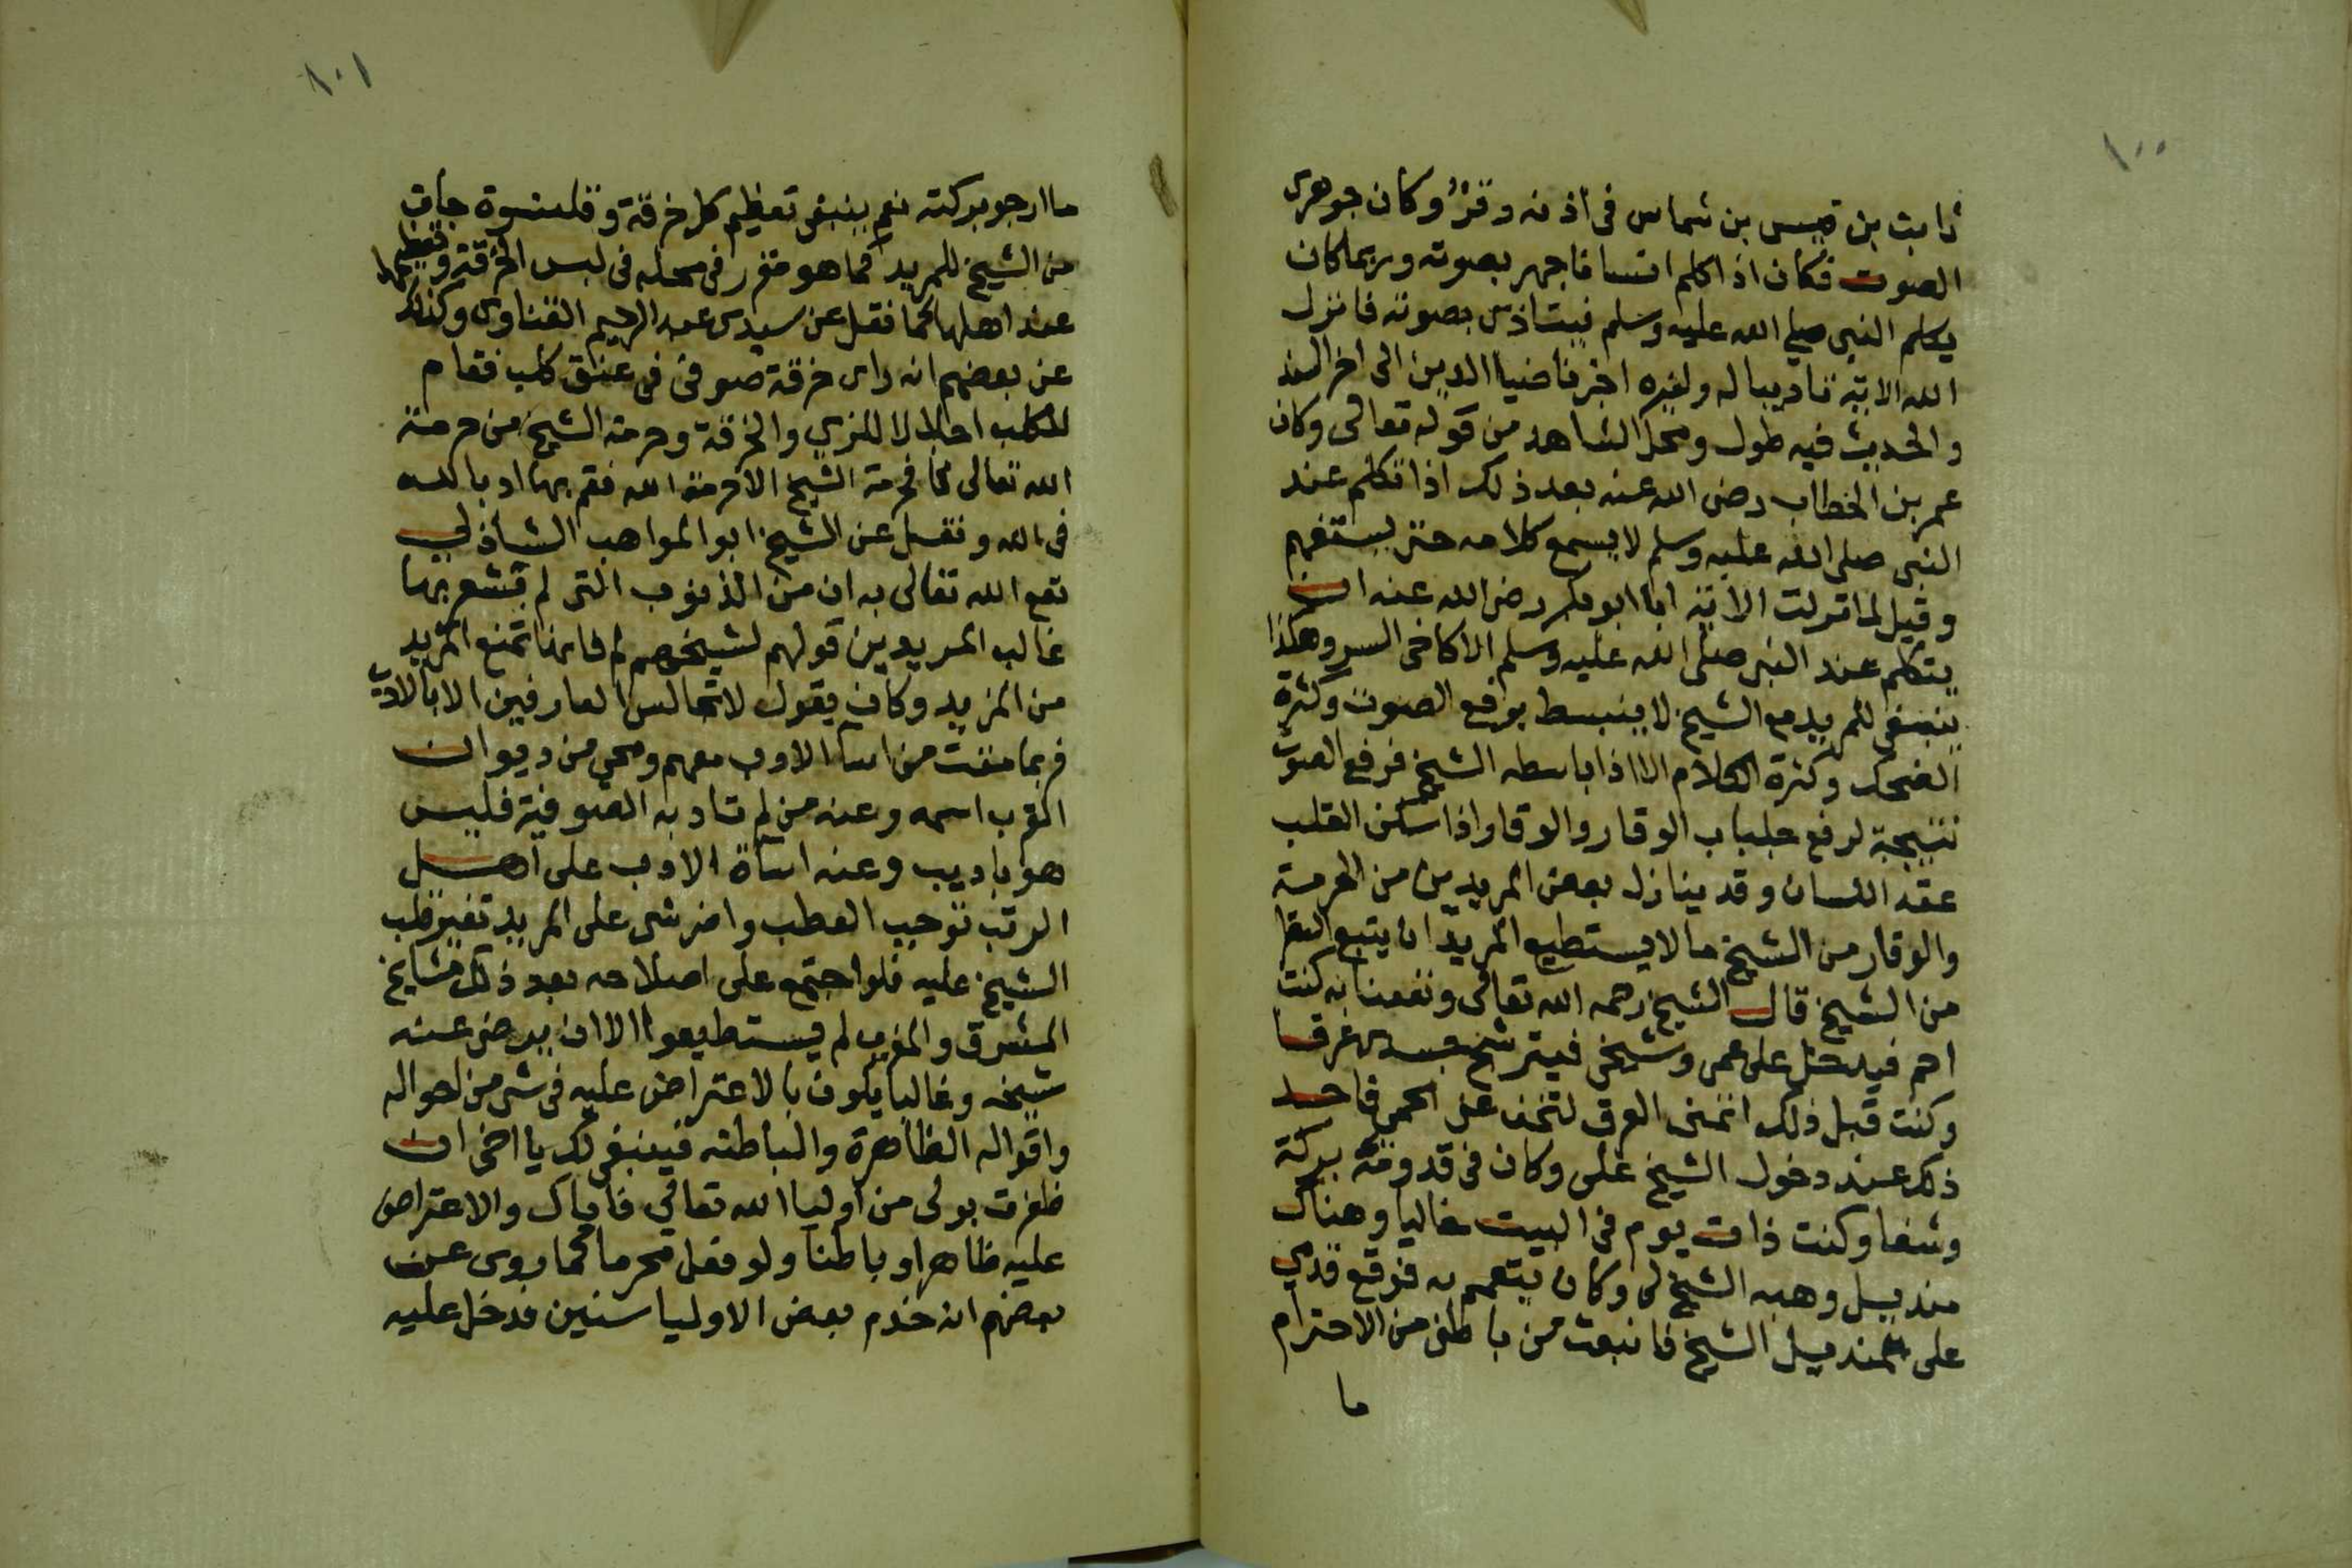 ١٠٠
ثابت بن قيس بن شماس فى اذنه وقر وكان جوهرى
الصوت فكان اذا كلم انسانا جهر بصوته وربما كان
يكلم النبى صلى الله عليه وسلم فيتاذى بصوته فانزل
الله الاية تاديبا له ولغيره اخبرنا ضيا الدين الى اخر السند
والحديث فيه طول ومحل الشاهد من قوله تعالى وكان
عمر بن الخطاب رضى الله عنه بعد ذلك اذا تكلم عند
النبى صلى الله عليه وسلم لا يسمع كلامه حتى يستفهم
وقيل لما نزلت الاية ابا ابو بكر رضى الله عنه ان
يتكلم عند النبى صلى الله عليه وسلم الا كاخى السر وهكذا
ينبغى للمريد مع الشيخ لا ينبسط برفع الصوت وكثرة
الضحك وكثرة الكلام الا اذا باسطه الشيخ فرفع الصوت
نتيجة لرفع جلباب الوقار والوقار اذا سكن القلب
عقد اللسان وقد ينازل بعض المريدين من الحرمة
والوقار من الشيخ ما لا يستطيع المريد ان يتبع النظر
من الشيخ قال الشيخ رحمه الله تعالى ونفعنا به كنت
احم فيدخل على عمى وشيخى فيترشح جسدى عرقا
وكنت قبل ذلك اتمنى العرق لتخف عنى الحمى فاجد
ذلك عند دخول الشيخ على وكان فى قدومه بركة
وشفا وكنت ذات يوم فى البيت خاليا وهناك
منديل وهبه الشيخ لى وكان يتعمم به فوقع قدمي
على المنديل الشيخ فانبعث من باطنى من الاحترام
ما
١٠١
ما ارجو بركته نعم ينبغى تعظيم كل خرقة وقلنسوة جات
من الشيخ للمريد كما هو مقرر فى محله فى لبس الخرقة وتعظيمها
عند اهلها كما نقل عن سيدى عبد الرحيم القناوى وكذلك
عن بعضهم انه راى خرقة صوفى فى عنق كلب فقام
للكلب اجلالا للزي والخرقة وحرمة الشيخ من حرمة
الله تعالى فما حرمة الشيخ الا حرمة الله فقم بها ادبا لله
فى الله ونقل عن الشيخ ابو المواهب الشاذلي
نفع الله تعالى به ان من الذنوب التى لم يشعر بها
غالب المريدين قولهم لشيخهم لم فانها تمنع المريد
من المزيد وكان يقول لا تجالس العارفين الا بالادب
فربما مقت من اسا الادب معهم ومحي من ديوان
القرب اسمه وعنه من لم تادبه الصوفية فليس
هو باديب وعنه اساة الادب على اهل
الرتب توجب العطب واضر شى على المريد تغير قلب
الشيخ عليه فلو اجتمع على اصلاحه بعد ذلك مشايخ
المشرق والمغرب لم يستطيعوا الا ان يرضى عنه
شيخه وغالبا يكون بالاعتراض عليه فى شى من احواله
واقواله الظاهرة والباطنه فينبغى لك يا اخى ان
ظفرت بولى من اوليا الله تعالى فاياك والاعتراض
عليه ظاهرا وباطنا ولو فعل محرما كما روى عن
بعضهم انه خدم بعض الاوليا سنين فدخل عليه